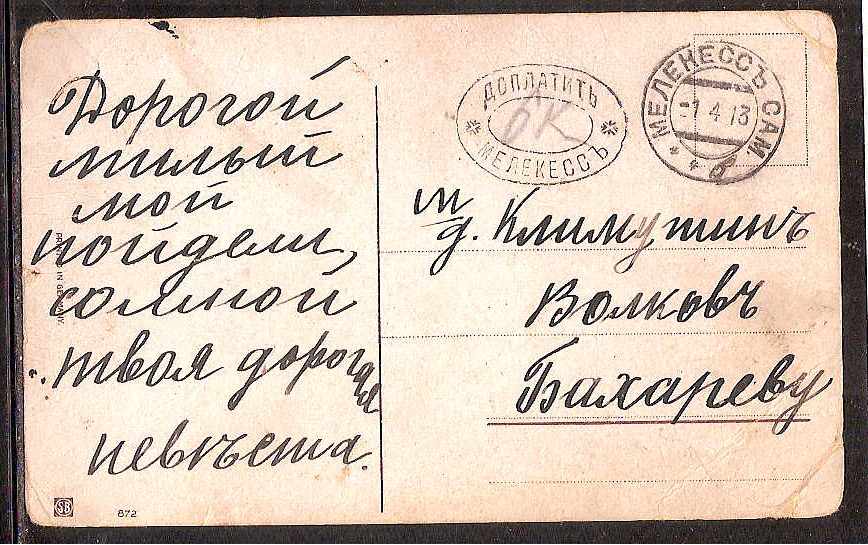 Дорогой
милый
мой
пойдели,
сомной
твоя дорогая
невѣста.
PRINTED IN GERMANY.
SB
872
ДОПЛАТИТЬ
6К
МЕЛЕКЕССЪ
МЕЛЕКЕССЪ САМ.
-1 4 13
м
д. Климушинъ
Волковъ
Бахареву